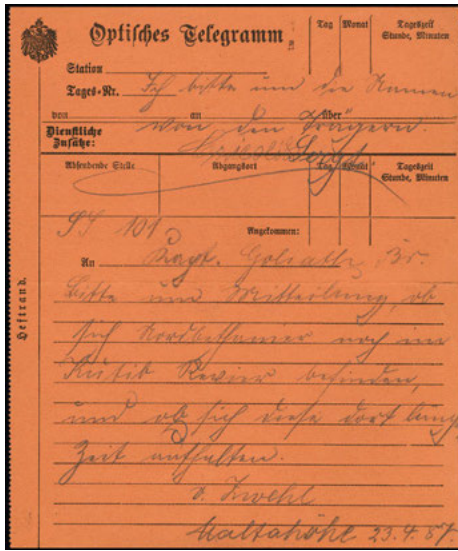 Optisches Telegramm
Tag Monat Tageszeit
Stunde, Minuten
Station
Tages-Nr. Ich bitte um die Namen
von an über
von den Trägern.
Dienstliche
Zusätze:
Absendende Stelle Abgangsort Tag Monat Tageszeit
Stunde, Minuten
101
Angekommen:
An Kapt. Goliath, Br.
Bitte um Mitteilung, ob
sich Nordbethanier noch im
Kutib Revier befinden,
und ob sich diese dort lange
Zeit aufhalten.
v. Zwehl
Maltahöhe 23.4.
Heftrand.